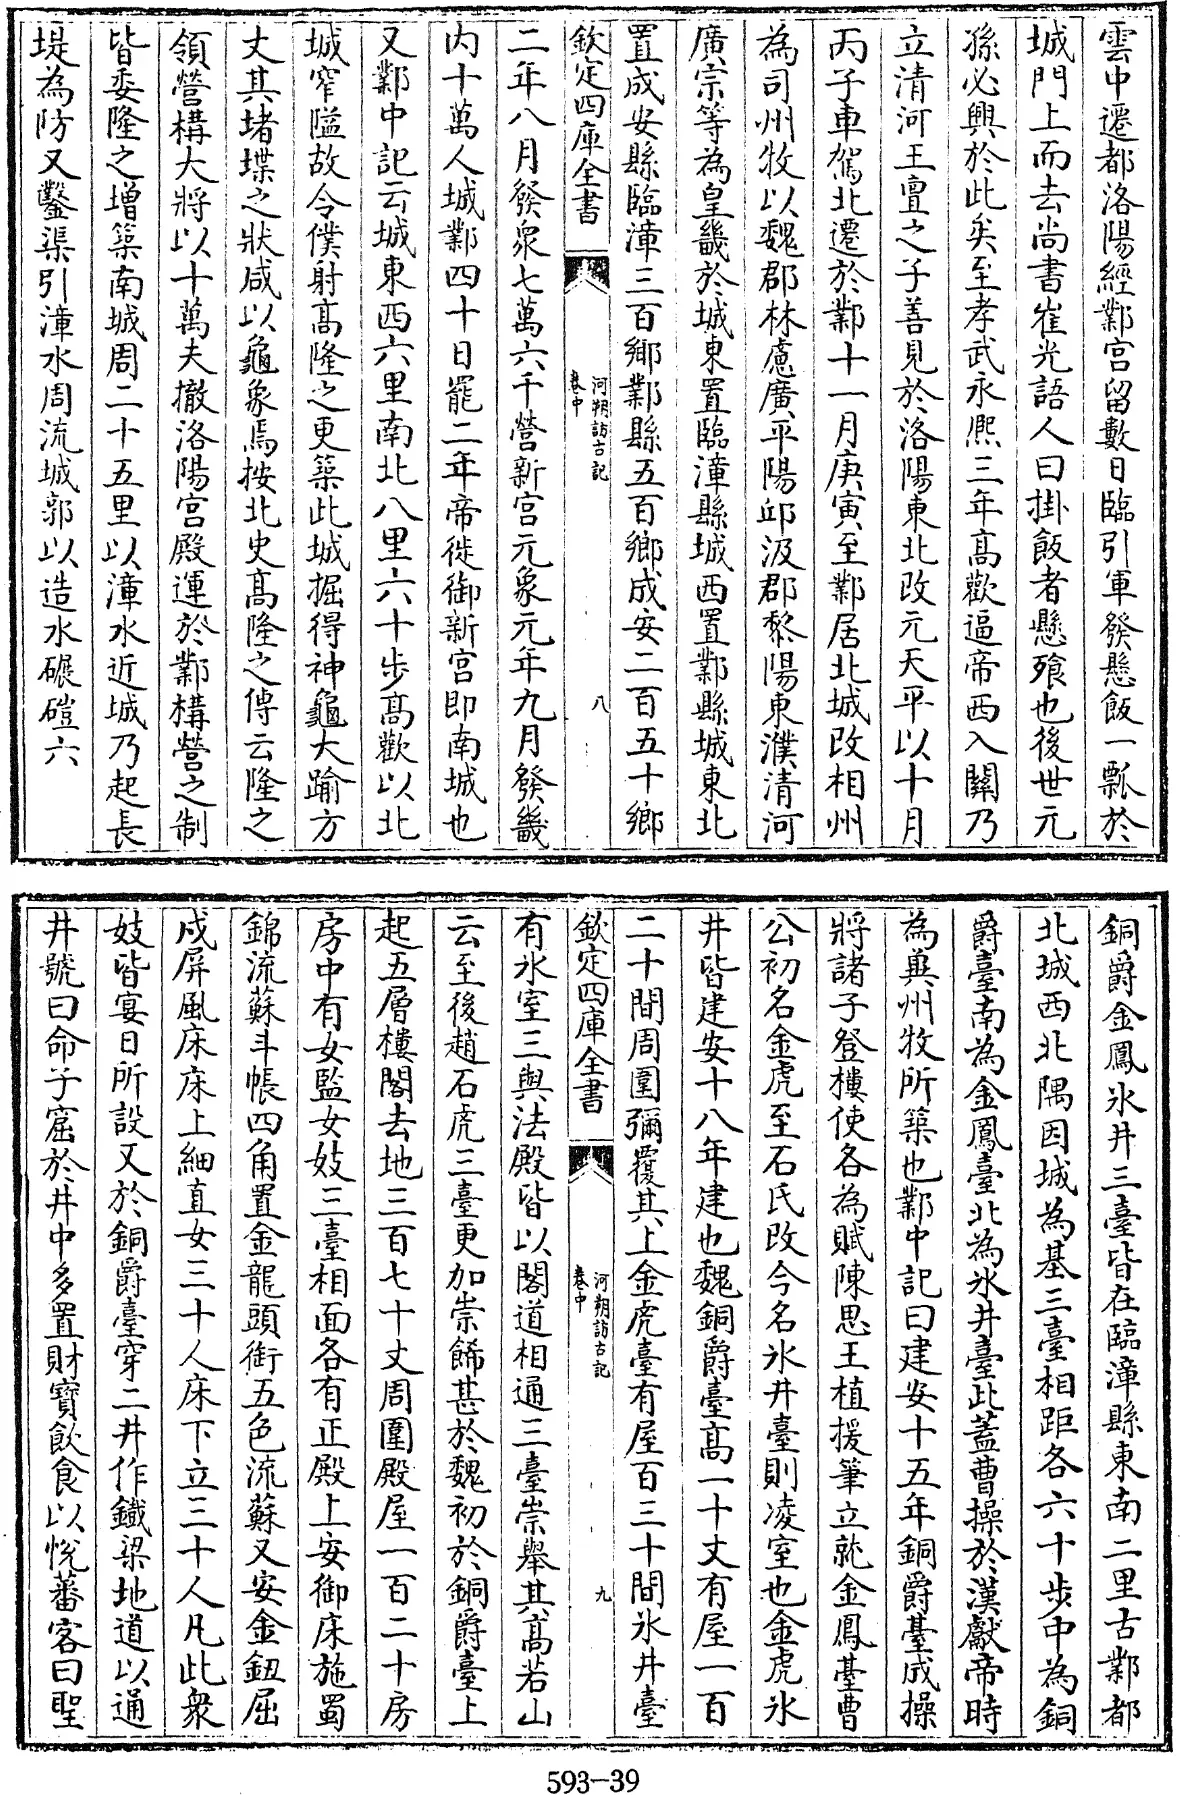 雲中遷都洛陽經鄴宮留數日臨引軍發懸飯一瓢於
城門上而去尚書崔光語人曰掛飯者懸飱也後世元
孫必興於此矣至孝武永熈三年高歡逼帝西入關乃
立清河王亶之子善見於洛陽東北改元天平以十月
丙子車駕北遷於鄴十一月庚寅至鄴居北城改相州
為司州牧以魏郡林慮廣平陽邱汲郡黎陽東濮清河
廣宗等為皇畿於城東置臨漳縣城西置鄴縣城東北
置成安縣臨漳三百鄉鄴縣五百鄉成安二百五十鄉
欽定四庫全書
河朔訪古記
卷中
八
二年八月發衆七萬六千營新宮元象元年九月發畿
内十萬人城鄴四十日罷二年帝徙御新宮即南城也
又鄴中記云城東西六里南北八里六十步高歡以北
城窄隘故令僕射高隆之更築此城掘得神龜大踰方
丈其堵堞之狀咸以龜象焉按北史高隆之傳云隆之
領營構大將以十萬夫撤洛陽宮殿運於鄴構營之制
皆委隆之增築南城周二十五里以漳水近城乃起長
堤為防又鑿渠引漳水周流城郭以造水碾磑六
銅爵金鳳氷井三臺皆在臨漳縣東南二里古鄴都
北城西北隅因城為基三臺相距各六十步中為銅
爵臺南為金鳳臺北為氷井臺此蓋曹操於漢獻帝時
為兾州牧所築也鄴中記曰建安十五年銅爵臺成操
將諸子登樓使各為賦陳思王植援筆立就金鳳臺曹
公初名金虎至石氏改今名氷井臺則凌室也金虎氷
井皆建安十八年建也魏銅爵臺高一十丈有屋一百
二十間周圍彌覆其上金虎臺有屋百三十間氷井臺
欽定四庫全書
河朔訪古記
卷中
九
有氷室三與法殿皆以閣道相通三臺崇舉其高若山
云至後趙石虎三臺更加崇飾甚於魏初於銅爵臺上
起五層樓閣去地三百七十丈周圍殿屋一百二十房
房中有女監女妓三臺相面各有正殿上安御床施蜀
錦流蘇斗帳四角置金龍頭銜五色流蘇又安金鈕屈
戌屏風床床上細直女三十人床下立三十人凡此衆
妓皆宴日所設又於銅爵臺穿二井作鐵梁地道以通
井號曰命子窟於井中多置財寶飲食以悅蕃客曰聖
593-39